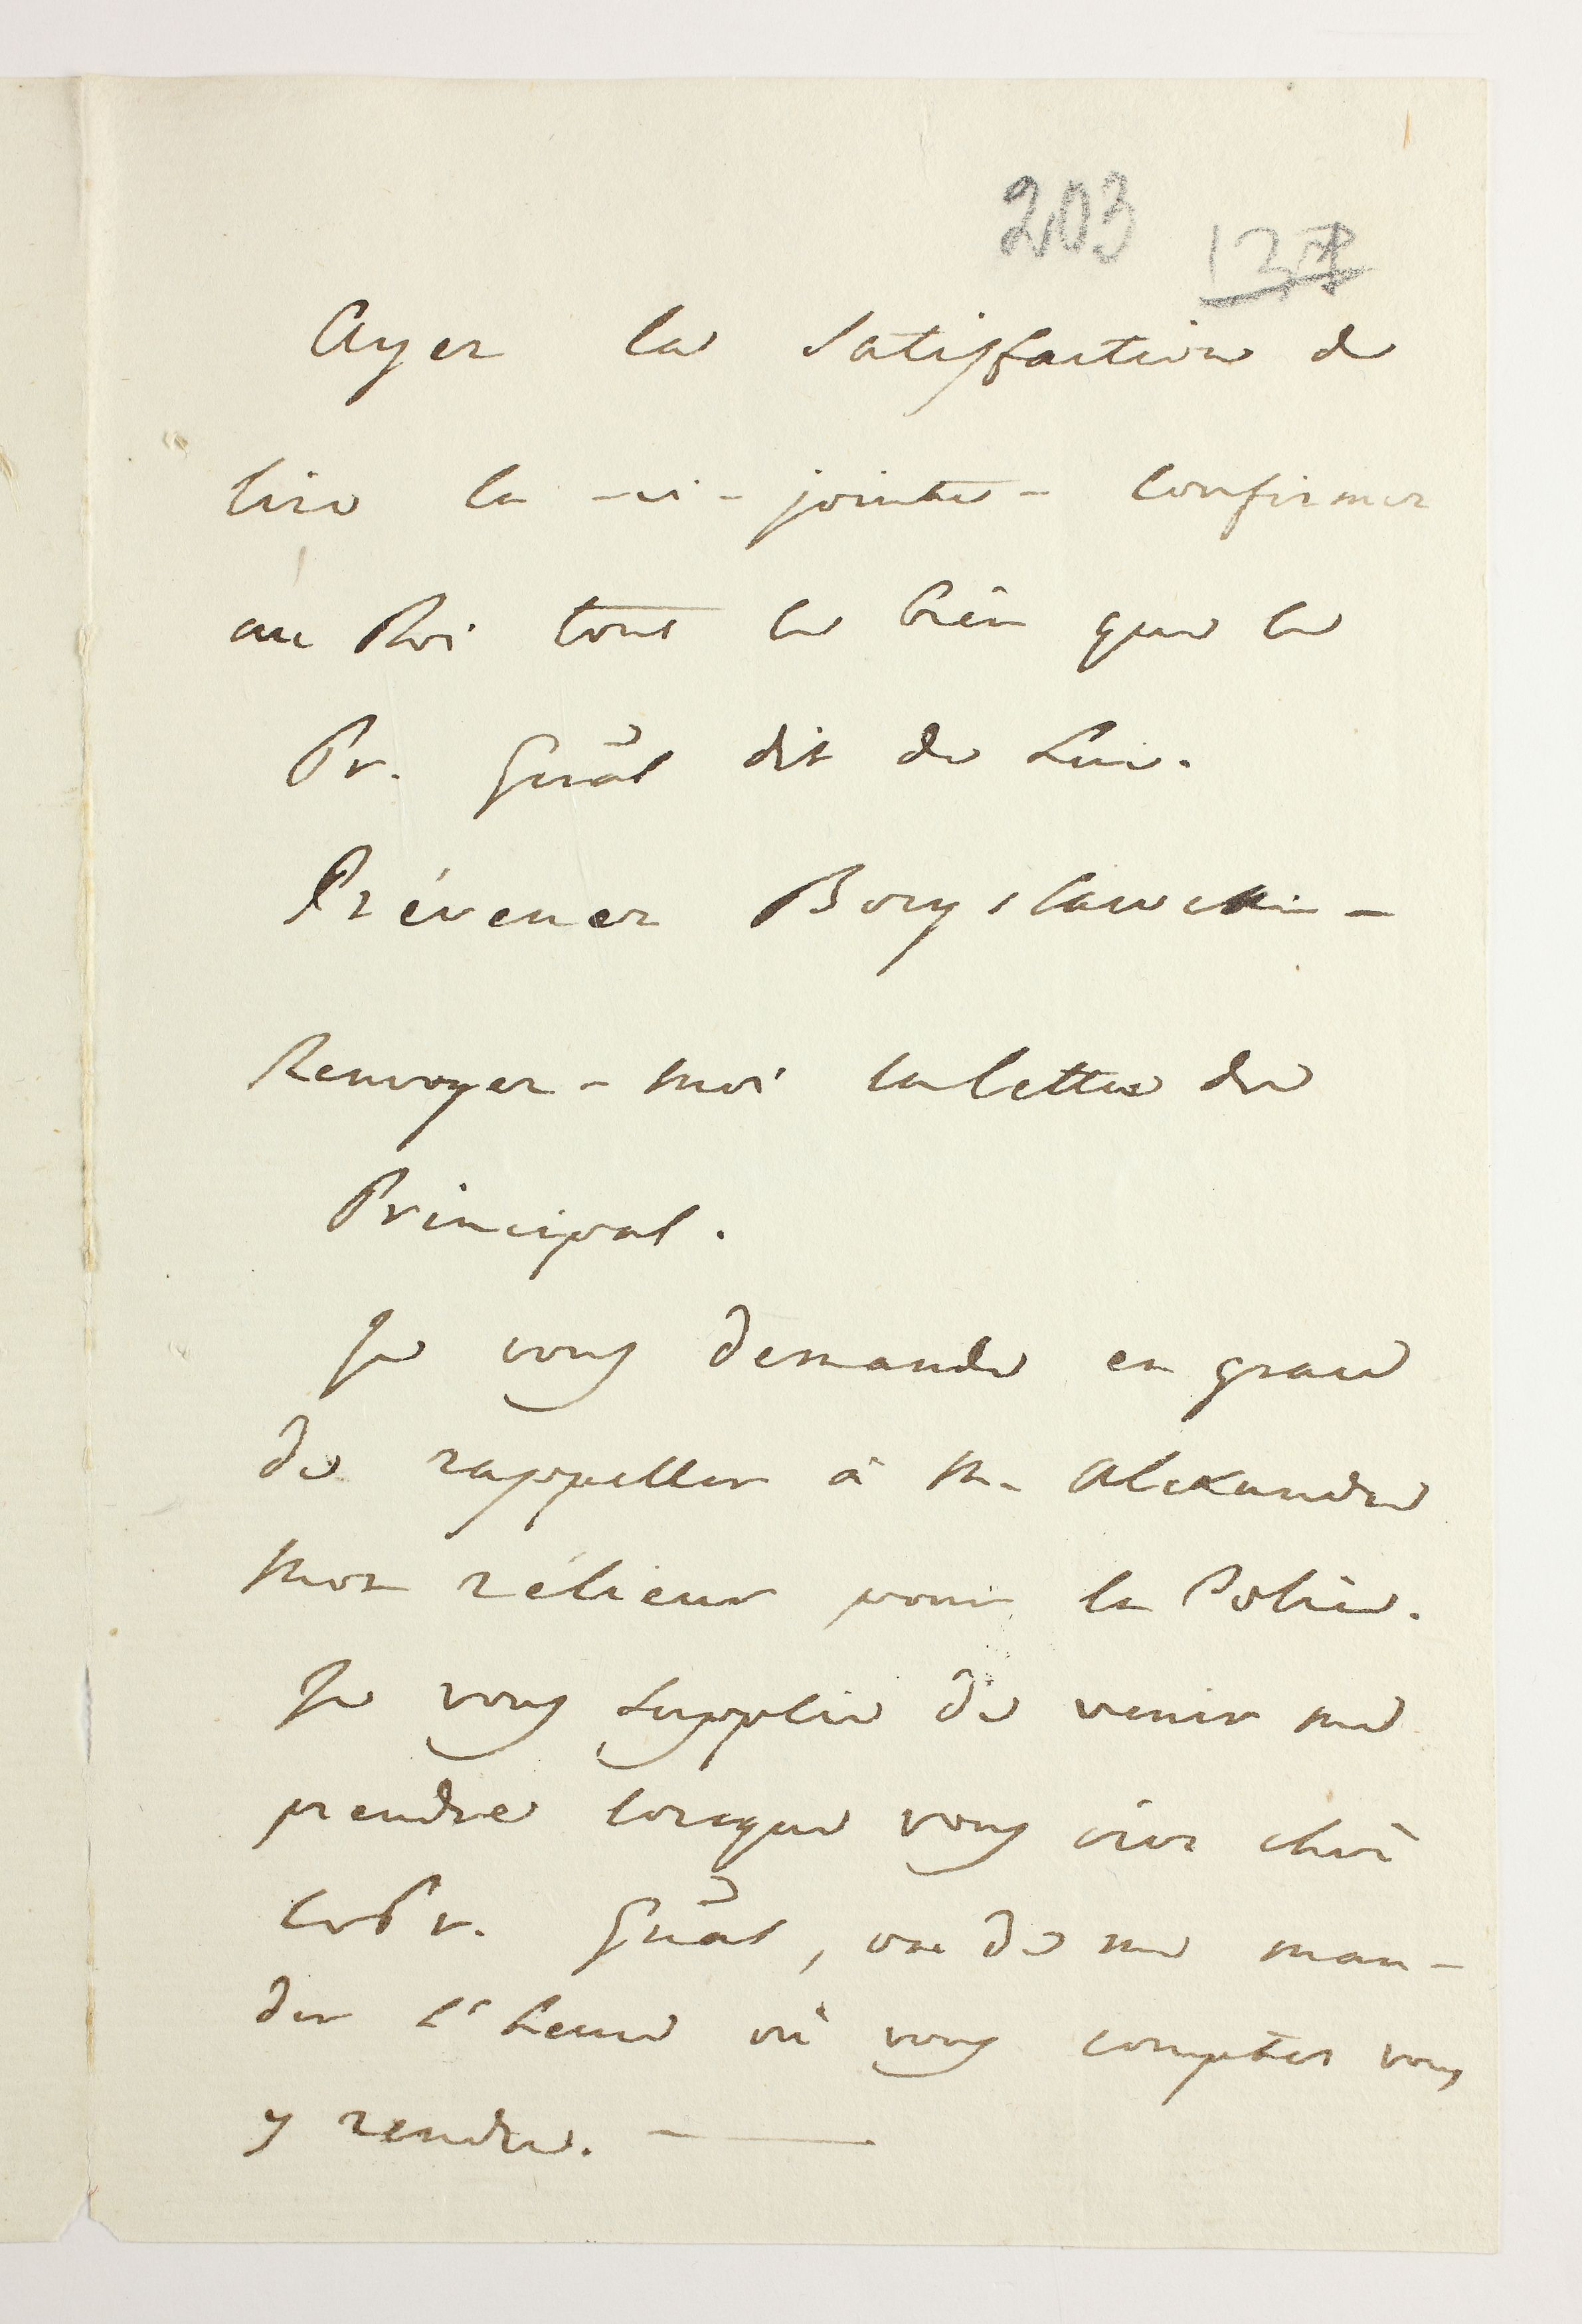 203 137
Ayez la satisfaction de
lire la -ci-jointe - Confirmez
au Roi tout le bien que le
Pr. Gnăl dit de Lui.
Prévenez Boryslawski -
Renvoyez-moi la lettre du
Principal.
Je vous demande en grace
de rappeller à M. Alexandre
mon rélieur pour la Police.
Je vous supplie de venir me
prendre lorsque vous irez chéz
le Pr. Gnăl, ou de me man-
der l'heure où vous comptez vous
y rendre. -